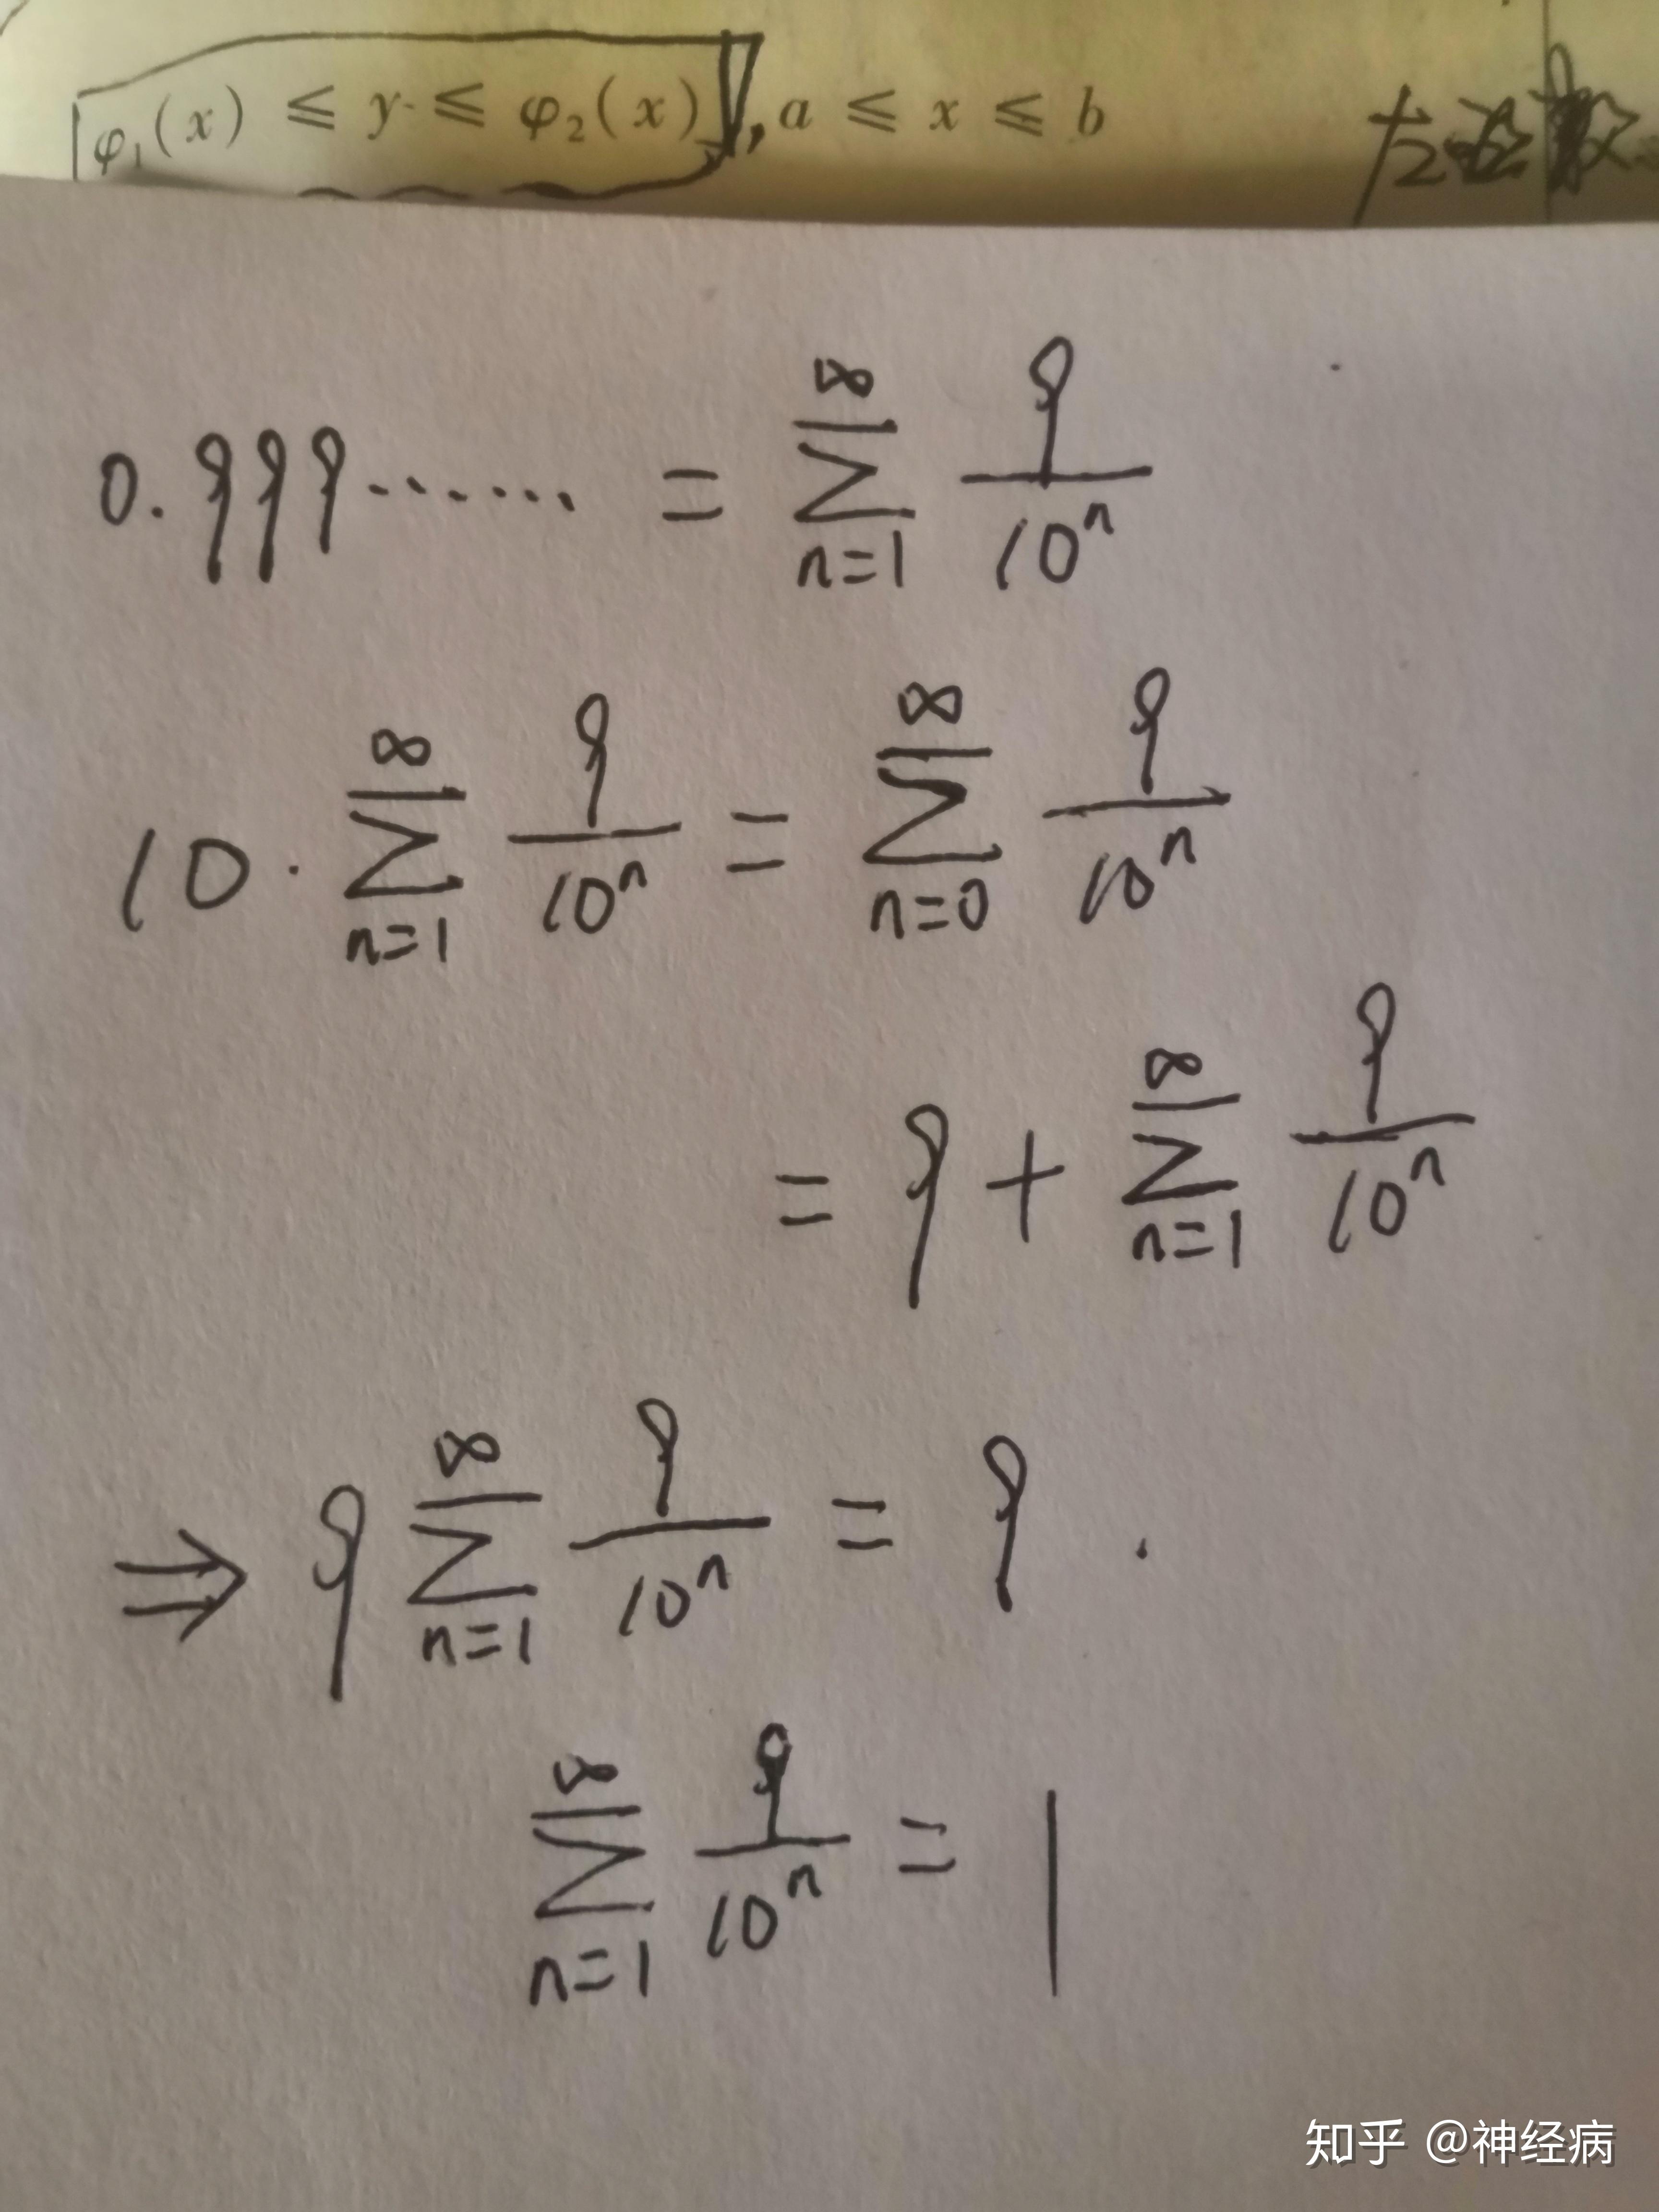 φ₁(x) ≤ y ≤ φ₂(x), a ≤ x ≤ b
0.999…… = ∑_{n=1}^{∞} 9/10ⁿ
10·∑_{n=1}^{∞} 9/10ⁿ = ∑_{n=0}^{∞} 9/10ⁿ
= 9 + ∑_{n=1}^{∞} 9/10ⁿ
⇒ 9 ∑_{n=1}^{∞} 9/10ⁿ = 9 .
∑_{n=1}^{∞} 9/10ⁿ = 1
知乎 @神经病